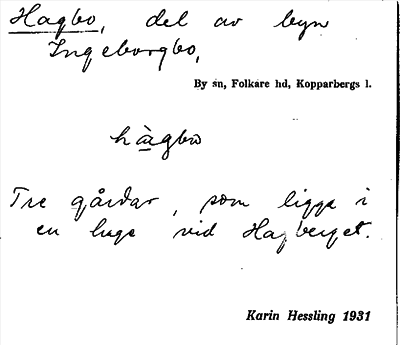 Hagbo, del av byn
Ingeborgbo,
By sn, Folkare hd, Kopparbergs l.
hàgbω
Tre gårdar, som ligga i
en hage vid Hagberget.
Karin Hessling 1931